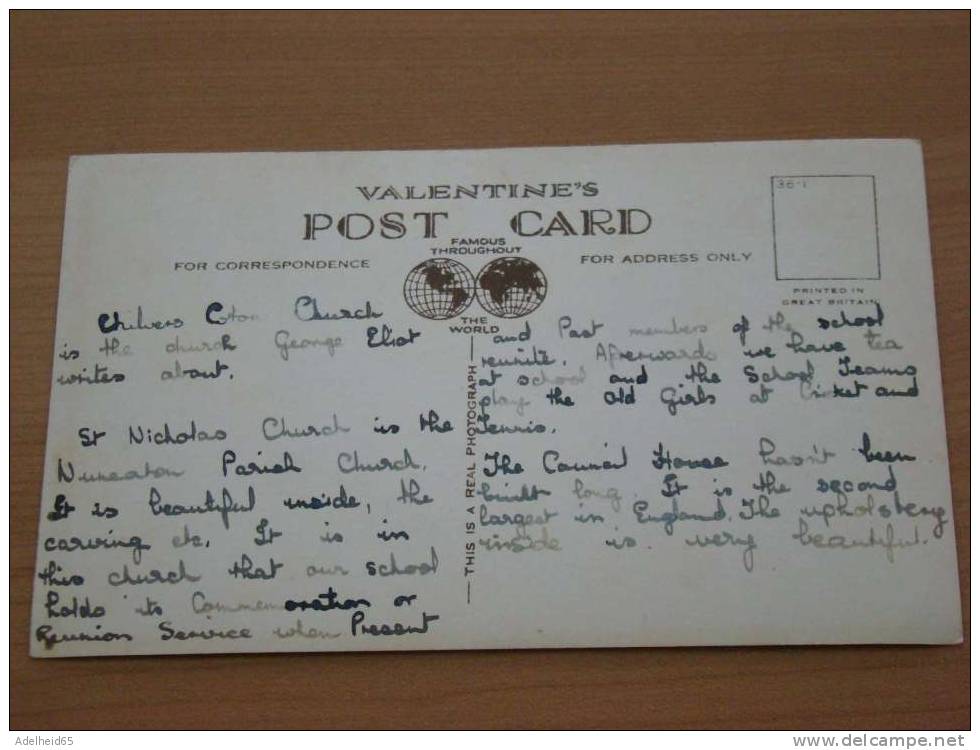 VALENTINE'S
POST CARD
FAMOUS
THROUGHOUT
THE
WORLD
FOR CORRESPONDENCE
FOR ADDRESS ONLY
36-1
PRINTED IN
GREAT BRITAIN
THIS IS A REAL PHOTOGRAPH
Chilvers Coton Church
is the church George Eliot
writes about.
St Nicholas Church is the
Nuneaton Parish Church.
It is beautiful inside, the
carving etc. It is in
this church that our school
holds its Commemoration or
Reunion Service when Present
and Past members of the school
reunite. Afterwards we have tea
at school and the School Teams
play the Old Girls at Cricket and
Tennis.
The Council House hasn't been
built long. It is the second
largest in England. The upholstery
inside is very beautiful.
Adelheid65
www.delcampe.net